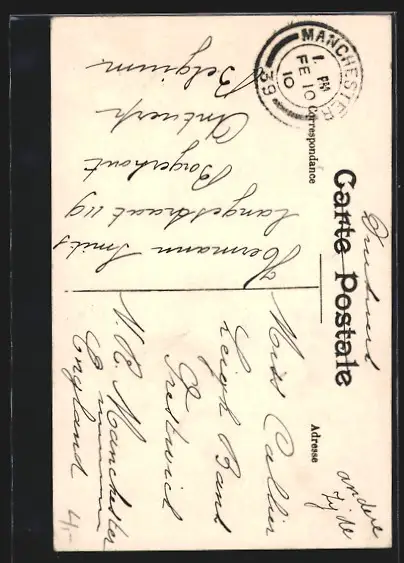 Carte Postale
Correspondance
Adresse
MANCHESTER
1. PM
FE 10
10
39
Hermann Smits
Langestraat 119
Borgerhout
Antwerp
Belgium
Miss Callier
Leigh Bank
Prestwich
N. R. Manchester
England
andere
zijde
4,-